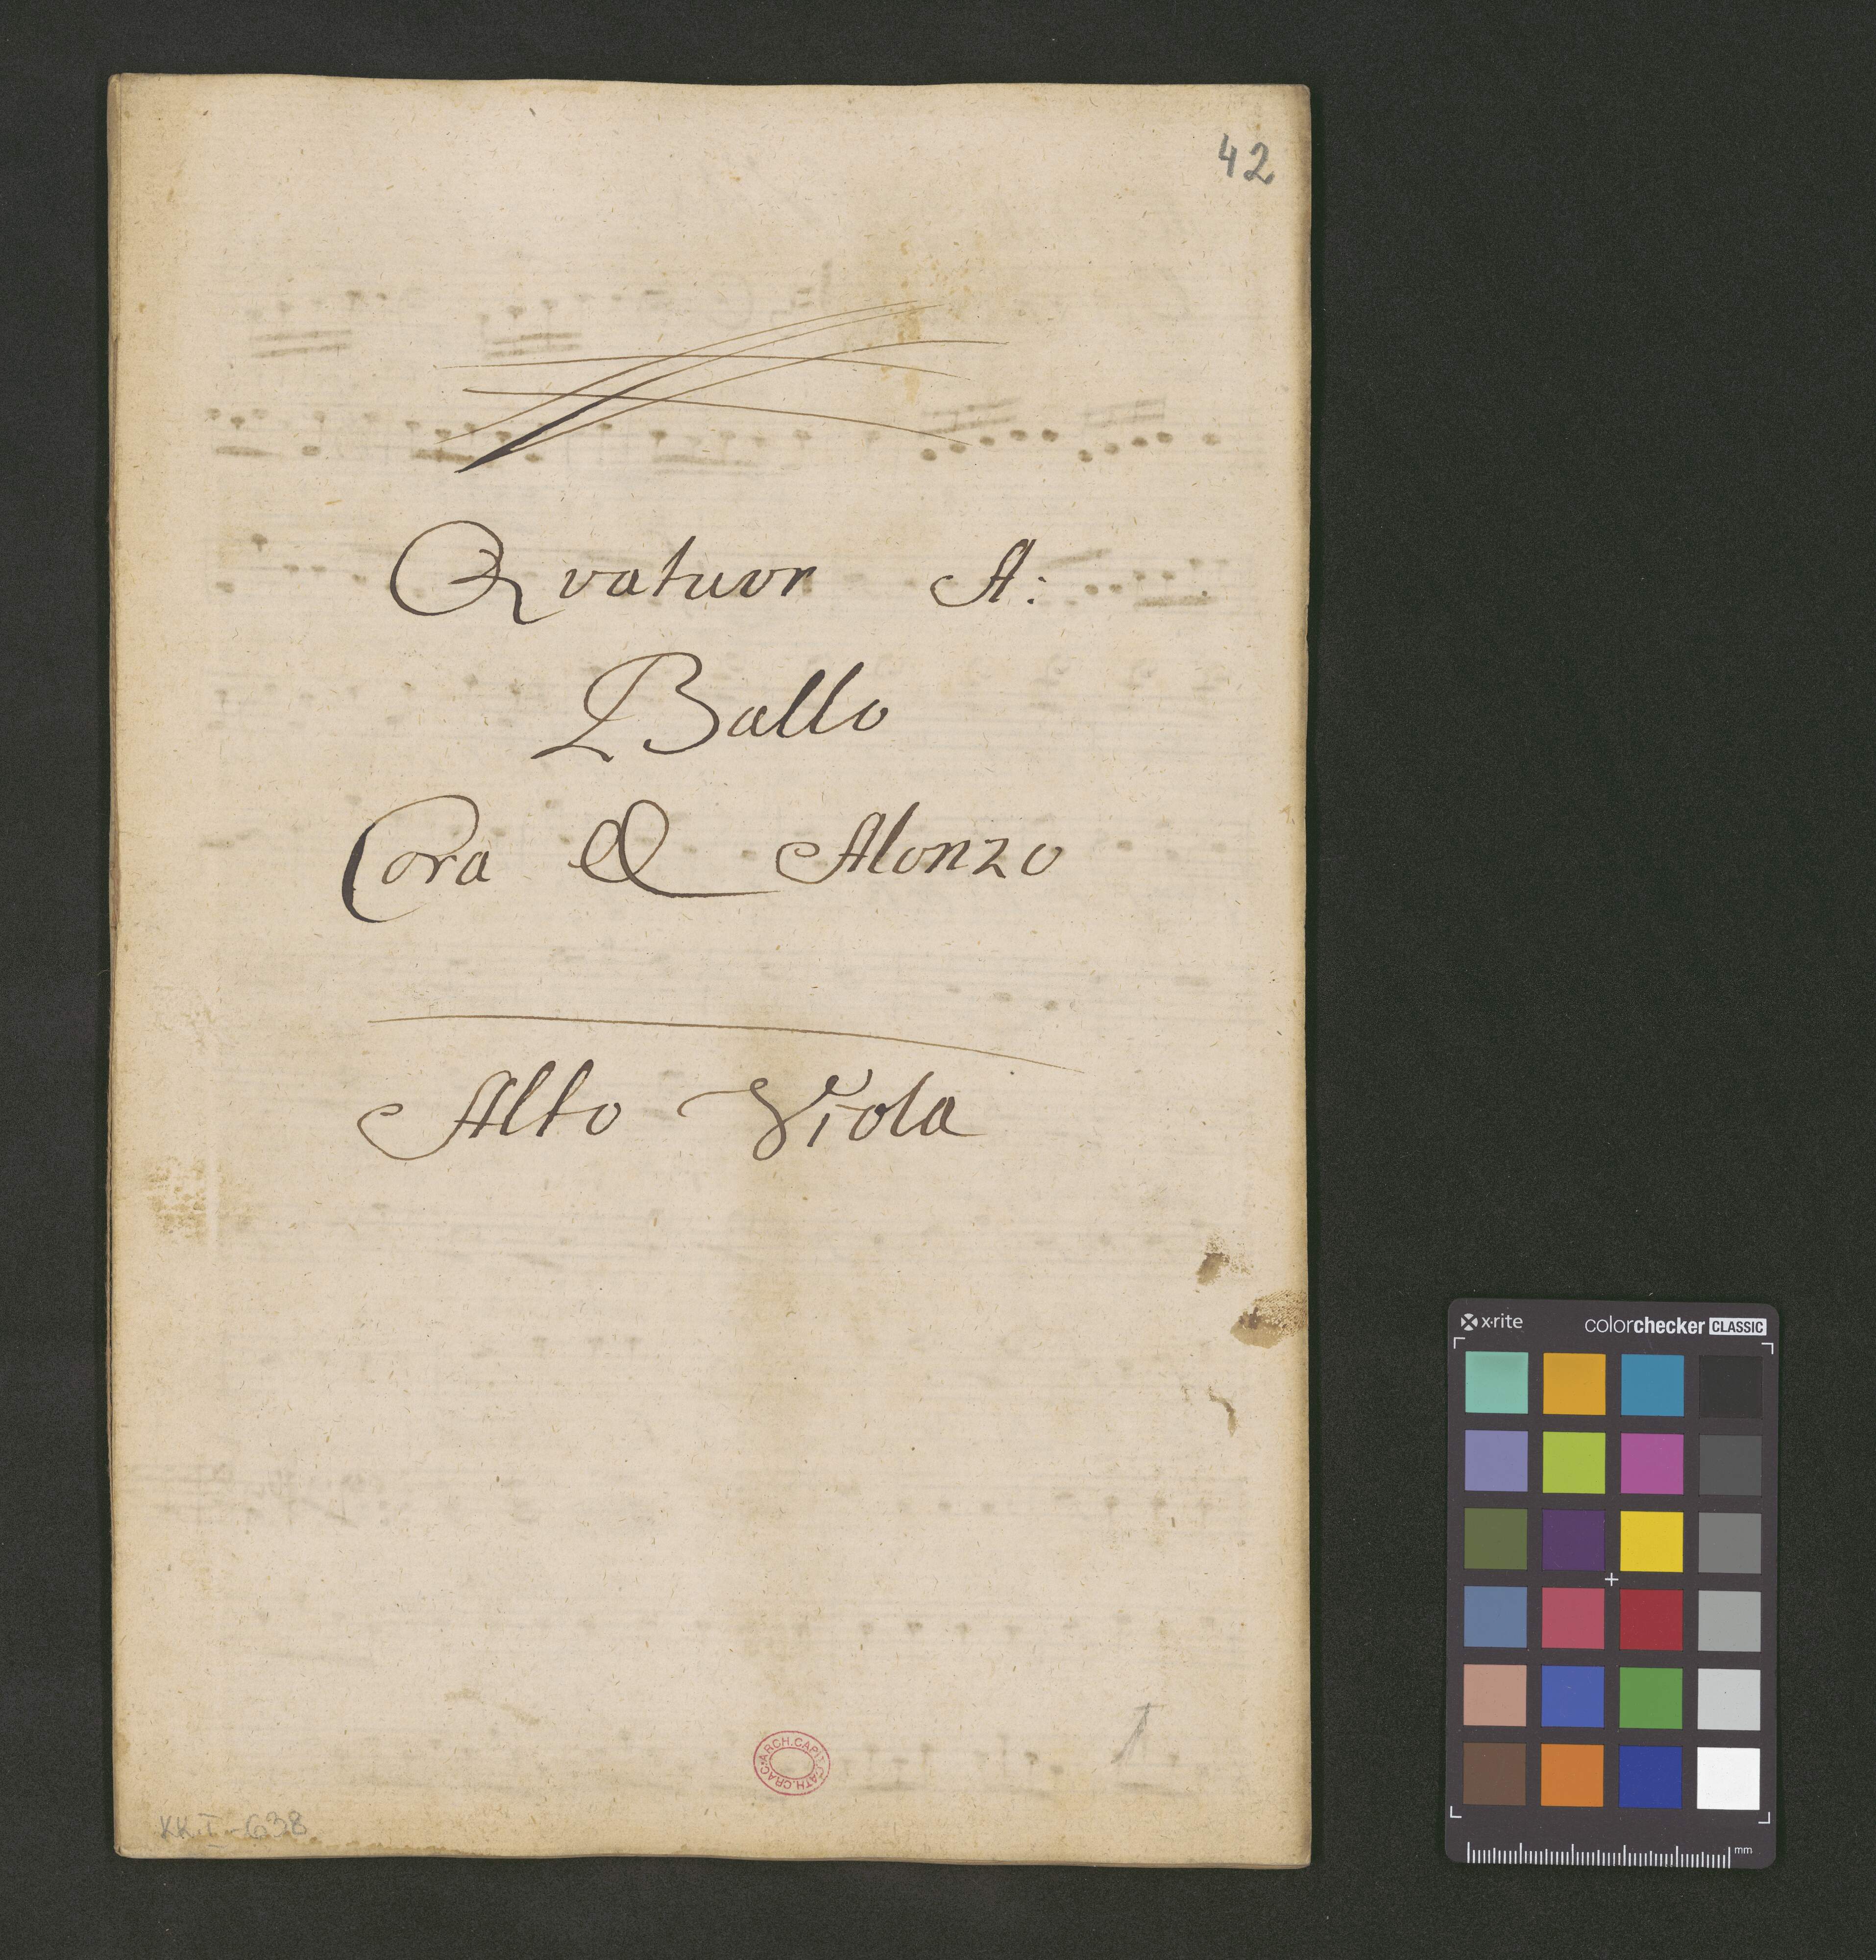 42
Qvatuor A:
Ballo
Cora & Alonzo
Alto Viola
ARCH.CAPIT.CATH.CRAC.
1
KK.I-638
x·rite colorchecker CLASSIC
mm